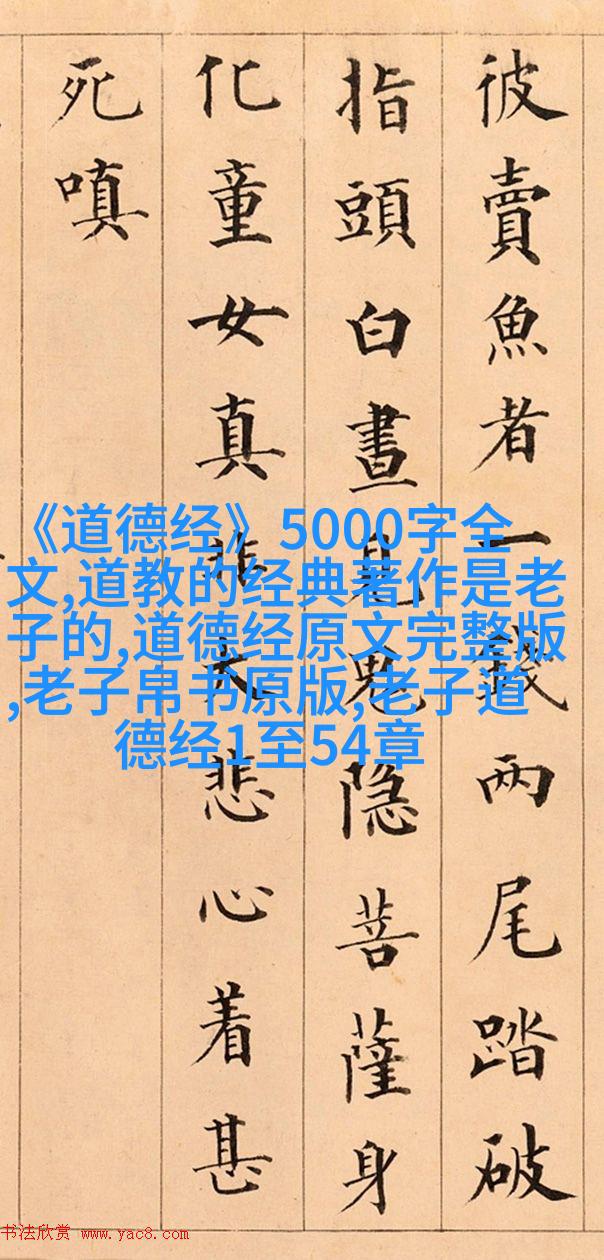 彼賣魚者一錢兩尾踏破
指頭白晝見鬼隐菩薩身
化童女真大悲心着甚
死嗔
《道德经》5000字全
文,道教的经典著作是老
子的,道德经原文完整版
,老子帛书原版,老子道
德经1至54章
书法欣赏 www.yac8.com